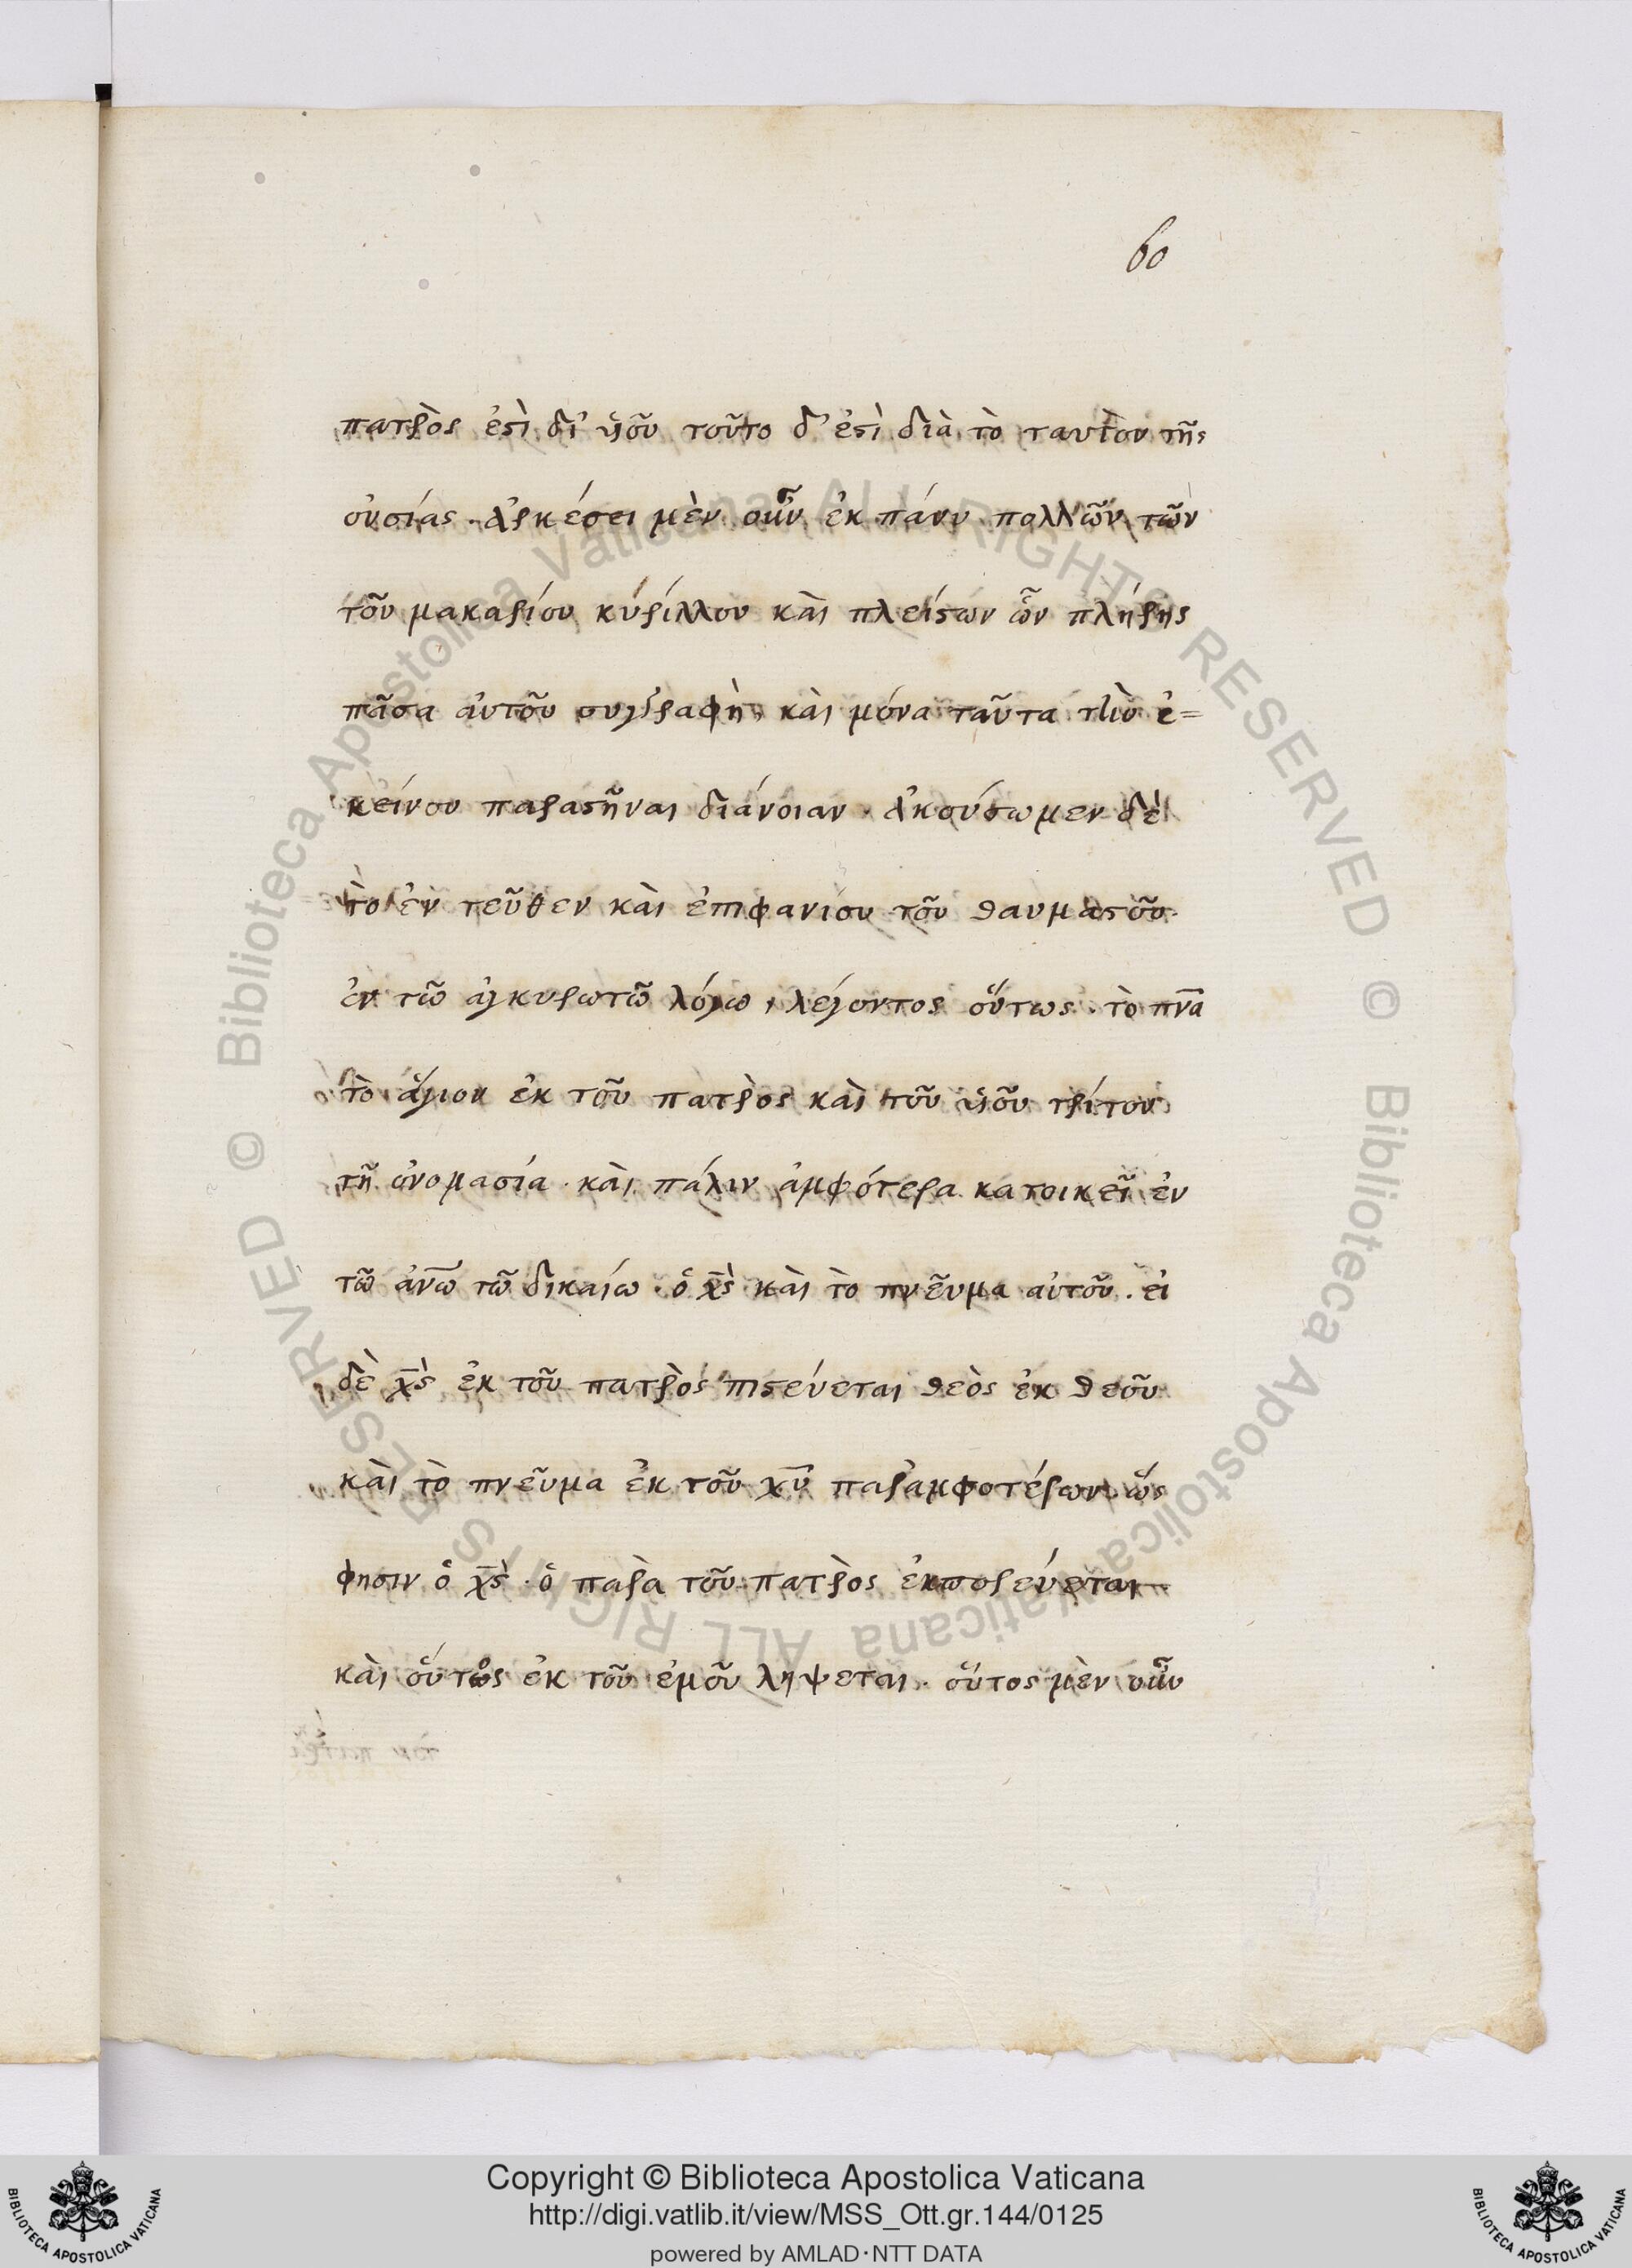 60
πατρὸς ἐστὶ δι' ὑιοῦ τοῦτο δ' ἐστὶ διὰ τὸ ταυτὸν τῆς
οὐσίας. Ἀρκέσει μὲν οὖν ἐκ πάνυ πολλῶν τῶν
τοῦ μακαρίου κυρίλλου κὰι πλείστων ὧν πλήρης
πᾶσα αὐτοῦ συγγραφὴ, κὰι μόνα ταῦτα τὴν ἐ=
κείνου παραστῆναι διάνοιαν. Ἀκούσωμεν δὲ
τὸ ἐν τεῦθεν κὰι ἐπιφανίου τοῦ θαυμαστοῦ
ἐν τῶ ἀγκυρωτῶ λόγω, λέγοντος οὕτως. τὸ πν̅α
τὸ ἅγιον ἐκ τοῦ πατρὸς κὰι τοῦ ὑιοῦ τρίτον
τῆ ὠνομασία. κὰι πάλιν ἀμφότερα κατοικεῖ ἐν
τῶ ἀν̅ω τῶ δικαίω. ὁ χ̅ς κὰι τὸ πνεῦμα αὐτοῦ. εἰ
δὲ χ̅ς ἐκ τοῦ πατρὸς πιστεύεται θεὸς ἐκ θεοῦ
κὰι τὸ πνεῦμα ἐκ τοῦ χ̅υ παραμφοτέρων ὥς
φησιν ὁ χ̅ς. ὁ παρὰ τοῦ πατρὸς ἐκπορεύεται
κὰι οὕτος ἐκ τοῦ ἐμοῦ ληψεται. οὕτος μὲν οὖν
Copyright © Biblioteca Apostolica Vaticana
http://digi.vatlib.it/view/MSS_Ott.gr.144/0125
powered by AMLAD·NTT DATA
BIBLIOTECA APOSTOLICA VATICANA
BIBLIOTECA APOSTOLICA VATICANA
© Biblioteca Apostolica Vaticana ALL RIGHTS RESERVED
© Biblioteca Apostolica Vaticana ALL RIGHTS RESERVED